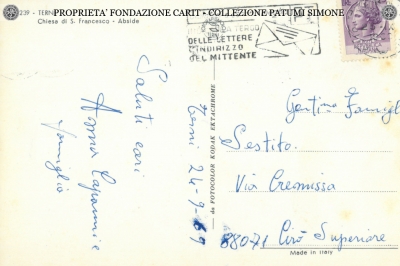 PROPRIETA' FONDAZIONE CARIT - COLLEZIONE PATUMI SIMONE
239 - TERNI
Chiesa di S. Francesco - Abside
DELLE LETTERE
L'INDIRIZZO
DEL MITTENTE
Saluti cari
famiglia
Terni 24-9-69
da FOTOCOLOR KODAK EKTACHROME
Gentima Famigl
Sestito.
Via Cremissa
88071 Cirò Superiore
Made in Italy